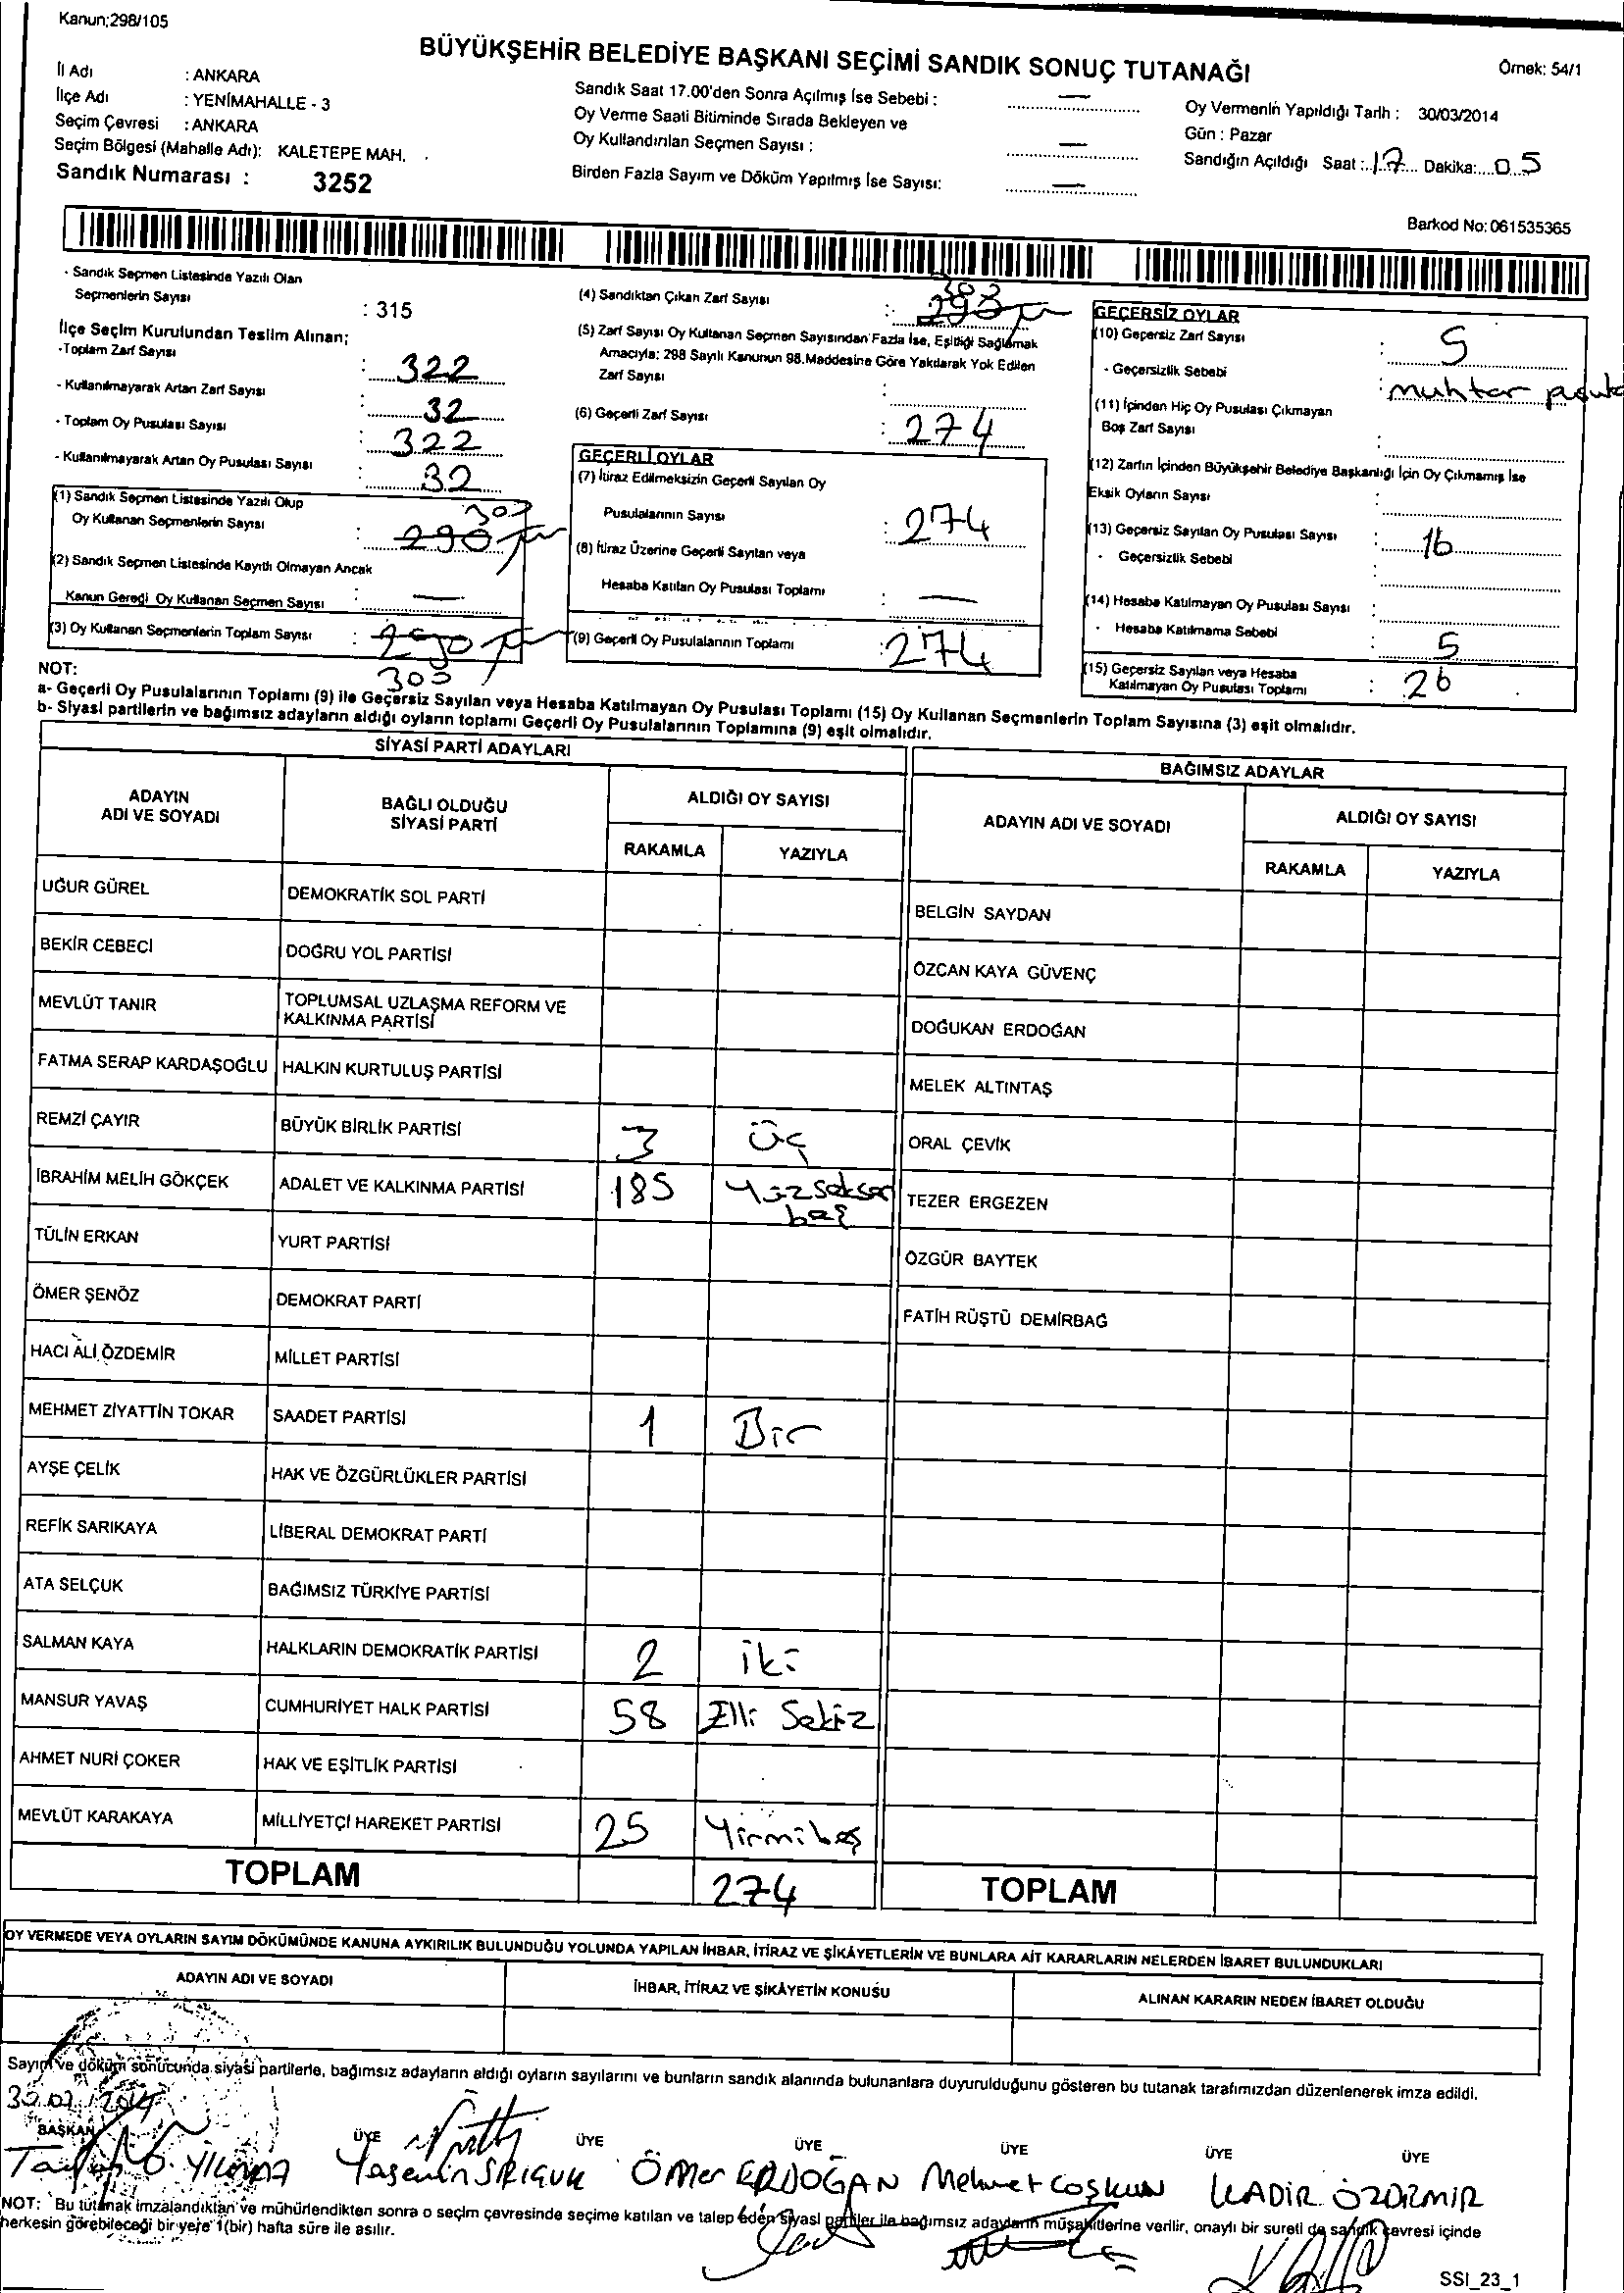 Kanun;298/105
BÜYÜKŞEHİR BELEDİYE BAŞKANI SEÇİMİ SANDIK SONUÇ TUTANAĞI
Örnek: 54/1
İl Adı : ANKARA
İlçe Adı : YENİMAHALLE - 3
Seçim Çevresi : ANKARA
Seçim Bölgesi (Mahalle Adı): KALETEPE MAH.
Sandık Numarası : 3252
Sandık Saat 17.00'den Sonra Açılmış İse Sebebi : —
Oy Verme Saati Bitiminde Sırada Bekleyen ve
Oy Kullandırılan Seçmen Sayısı : —
Birden Fazla Sayım ve Döküm Yapılmış İse Sayısı: —
Oy Vermenin Yapıldığı Tarih : 30/03/2014
Gün : Pazar
Sandığın Açıldığı Saat : 17 Dakika: 05
Barkod No: 061535365
- Sandık Seçmen Listesinde Yazılı Olan
Seçmenlerin Sayısı : 315
İlçe Seçim Kurulundan Teslim Alınan;
-Toplam Zarf Sayısı : 322
- Kullanılmayarak Artan Zarf Sayısı : 32
- Toplam Oy Pusulası Sayısı : 322
- Kullanılmayarak Artan Oy Pusulası Sayısı : 32
(1) Sandık Seçmen Listesinde Yazılı Olup
Oy Kullanan Seçmenlerin Sayısı : 290
(2) Sandık Seçmen Listesinde Kayıtlı Olmayan Ancak
Kanun Gereği Oy Kullanan Seçmen Sayısı : —
(3) Oy Kullanan Seçmenlerin Toplam Sayısı : 290
303
(4) Sandıktan Çıkan Zarf Sayısı :
303
(5) Zarf Sayısı Oy Kullanan Seçmen Sayısından Fazla İse, Eşitliği Sağlamak
Amacıyla; 298 Sayılı Kanunun 98.Maddesine Göre Yakılarak Yok Edilen
Zarf Sayısı :
(6) Geçerli Zarf Sayısı : 274
GEÇERLİ OYLAR
(7) İtiraz Edilmeksizin Geçerli Sayılan Oy
Pusulalarının Sayısı : 274
(8) İtiraz Üzerine Geçerli Sayılan veya
Hesaba Katılan Oy Pusulası Toplamı : —
(9) Geçerli Oy Pusulalarının Toplamı : 274
GEÇERSİZ OYLAR
(10) Geçersiz Zarf Sayısı : 5
- Geçersizlik Sebebi : muhtar
(11) İçinden Hiç Oy Pusulası Çıkmayan
Boş Zarf Sayısı :
(12) Zarfın İçinden Büyükşehir Belediye Başkanlığı İçin Oy Çıkmamış İse
Eksik Oyların Sayısı :
(13) Geçersiz Sayılan Oy Pusulası Sayısı : 16
- Geçersizlik Sebebi :
(14) Hesaba Katılmayan Oy Pusulası Sayısı :
- Hesaba Katılmama Sebebi : 5
(15) Geçersiz Sayılan veya Hesaba
Katılmayan Oy Pusulası Toplamı : 26
NOT:
a- Geçerli Oy Pusulalarının Toplamı (9) ile Geçersiz Sayılan veya Hesaba Katılmayan Oy Pusulası Toplamı (15) Oy Kullanan Seçmenlerin Toplam Sayısına (3) eşit olmalıdır.
b- Siyasi partilerin ve bağımsız adayların aldığı oyların toplamı Geçerli Oy Pusulalarının Toplamına (9) eşit olmalıdır.
SİYASİ PARTİ ADAYLARI
ADAYIN
ADI VE SOYADI
BAĞLI OLDUĞU
SİYASİ PARTİ
ALDIĞI OY SAYISI
RAKAMLA YAZIYLA
UĞUR GÜREL DEMOKRATİK SOL PARTİ
BEKİR CEBECİ DOĞRU YOL PARTİSİ
MEVLÜT TANIR TOPLUMSAL UZLAŞMA REFORM VE
KALKINMA PARTİSİ
FATMA SERAP KARDAŞOĞLU HALKIN KURTULUŞ PARTİSİ
REMZİ ÇAYIR BÜYÜK BİRLİK PARTİSİ 3 Üç
İBRAHİM MELİH GÖKÇEK ADALET VE KALKINMA PARTİSİ 185 Yüzseksen
beş
TÜLİN ERKAN YURT PARTİSİ
ÖMER ŞENÖZ DEMOKRAT PARTİ
HACI ALİ ÖZDEMİR MİLLET PARTİSİ
MEHMET ZİYATTİN TOKAR SAADET PARTİSİ 1 Bir
AYŞE ÇELİK HAK VE ÖZGÜRLÜKLER PARTİSİ
REFİK SARIKAYA LİBERAL DEMOKRAT PARTİ
ATA SELÇUK BAĞIMSIZ TÜRKİYE PARTİSİ
SALMAN KAYA HALKLARIN DEMOKRATİK PARTİSİ 2 iki
MANSUR YAVAŞ CUMHURİYET HALK PARTİSİ 58 Elli Sekiz
AHMET NURİ ÇOKER HAK VE EŞİTLİK PARTİSİ
MEVLÜT KARAKAYA MİLLİYETÇİ HAREKET PARTİSİ 25 Yirmibeş
TOPLAM 274
BAĞIMSIZ ADAYLAR
ADAYIN ADI VE SOYADI
ALDIĞI OY SAYISI
RAKAMLA YAZIYLA
BELGİN SAYDAN
ÖZCAN KAYA GÜVENÇ
DOĞUKAN ERDOĞAN
MELEK ALTINTAŞ
ORAL ÇEVİK
TEZER ERGEZEN
ÖZGÜR BAYTEK
FATİH RÜŞTÜ DEMİRBAĞ
TOPLAM
OY VERMEDE VEYA OYLARIN SAYIM DÖKÜMÜNDE KANUNA AYKIRILIK BULUNDUĞU YOLUNDA YAPILAN İHBAR, İTİRAZ VE ŞİKÂYETLERİN VE BUNLARA AİT KARARLARIN NELERDEN İBARET BULUNDUKLARI
ADAYIN ADI VE SOYADI
İHBAR, İTİRAZ VE ŞİKÂYETİN KONUSU
ALINAN KARARIN NEDEN İBARET OLDUĞU
Sayım ve döküm sonucunda siyasi partilerle, bağımsız adayların aldığı oyların sayılarını ve bunların sandık alanında bulunanlara duyurulduğunu gösteren bu tutanak tarafımızdan düzenlenerek imza edildi.
BAŞKAN ÜYE ÜYE ÜYE ÜYE ÜYE ÜYE
Yasemin ÖMer ERDOĞAN Mehmet COŞKUN KADİR ÖZDEMİR
NOT: Bu tutanak imzalandıktan ve mühürlendikten sonra o seçim çevresinde seçime katılan ve talep eden siyasi partiler ile bağımsız adayların müşahitlerine verilir, onaylı bir sureti de sandık çevresi içinde
herkesin görebileceği bir yere 1(bir) hafta süre ile asılır.
SSI_23_1